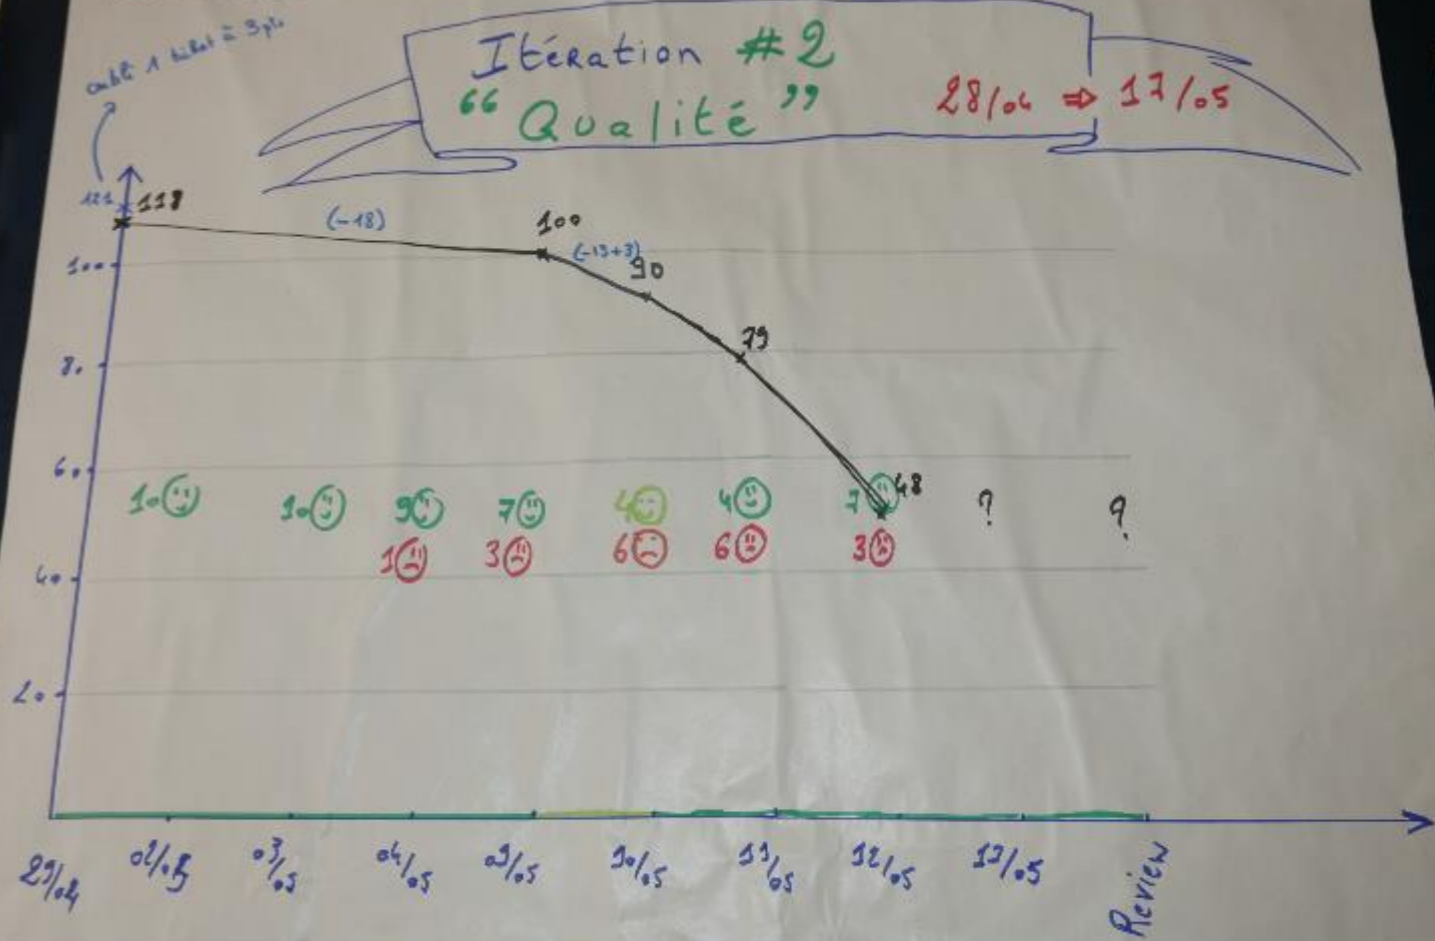 oublié 1 ticket à 3pts
Itération #2
“Qualité”
28/04 ⇒ 17/05
121
118
(-18)
100
(-13+3)
90
79
48
100
80
60
40
20
10 10 9 7 4 4 7 ? ?
1 3 6 6 3
29/04 02/05 03/05 04/05 09/05 10/05 11/05 12/05 17/05 Review